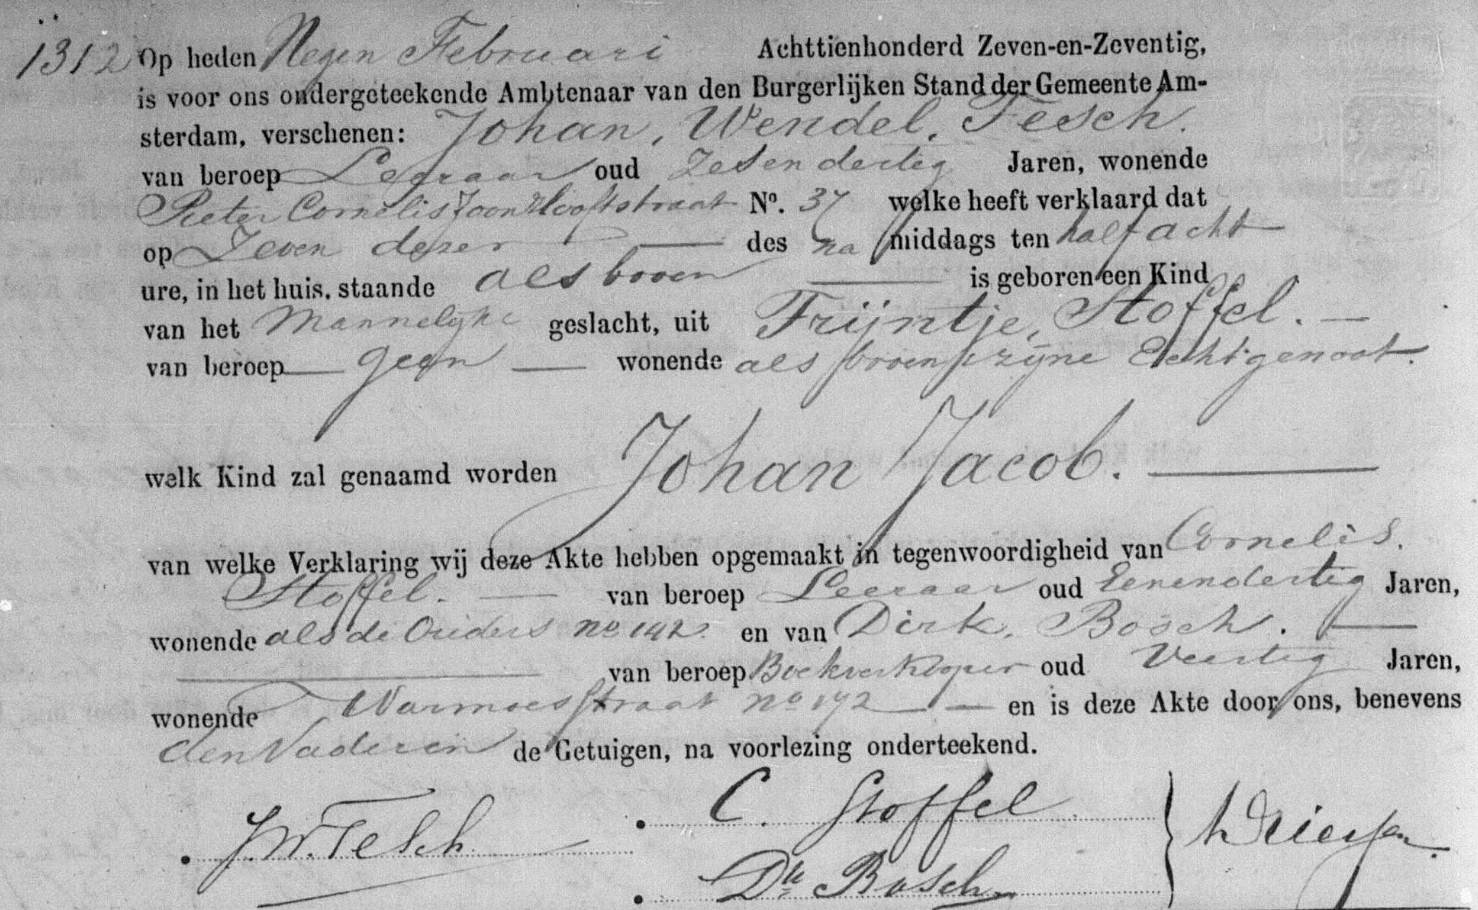 1312 Op heden Negen Februari Achttienhonderd Zeven-en-Zeventig,
is voor ons ondergeteekende Ambtenaar van den Burgerlijken Stand der Gemeente Am-
sterdam, verschenen: Johan, Wendel, Tesch.
van beroep Leeraar oud Zesendertig Jaren, wonende
Pieter Cornelis Zoon Hooftstraat No. 37 welke heeft verklaard dat
op Zeven dezer des na middags ten half acht
ure, in het huis, staande als boven is geboren een Kind
van het Mannelijke geslacht, uit Trijntje, Stoffel.
van beroep geen wonende als boven zijne Echtgenoot.
welk Kind zal genaamd worden Johan Jacob.
van welke Verklaring wij deze Akte hebben opgemaakt in tegenwoordigheid van Cornelis.
Stoffel. van beroep Leeraar oud Eenendertig Jaren,
wonende als de Ouders no 142 en van Dirk, Bosch.
van beroep Boekverkooper oud Veertig Jaren,
wonende Warmoesstraat no 192 en is deze Akte door ons, benevens
den Vader en de Getuigen, na voorlezing onderteekend.
J. W. Tesch
C. Stoffel
Dk Bosch